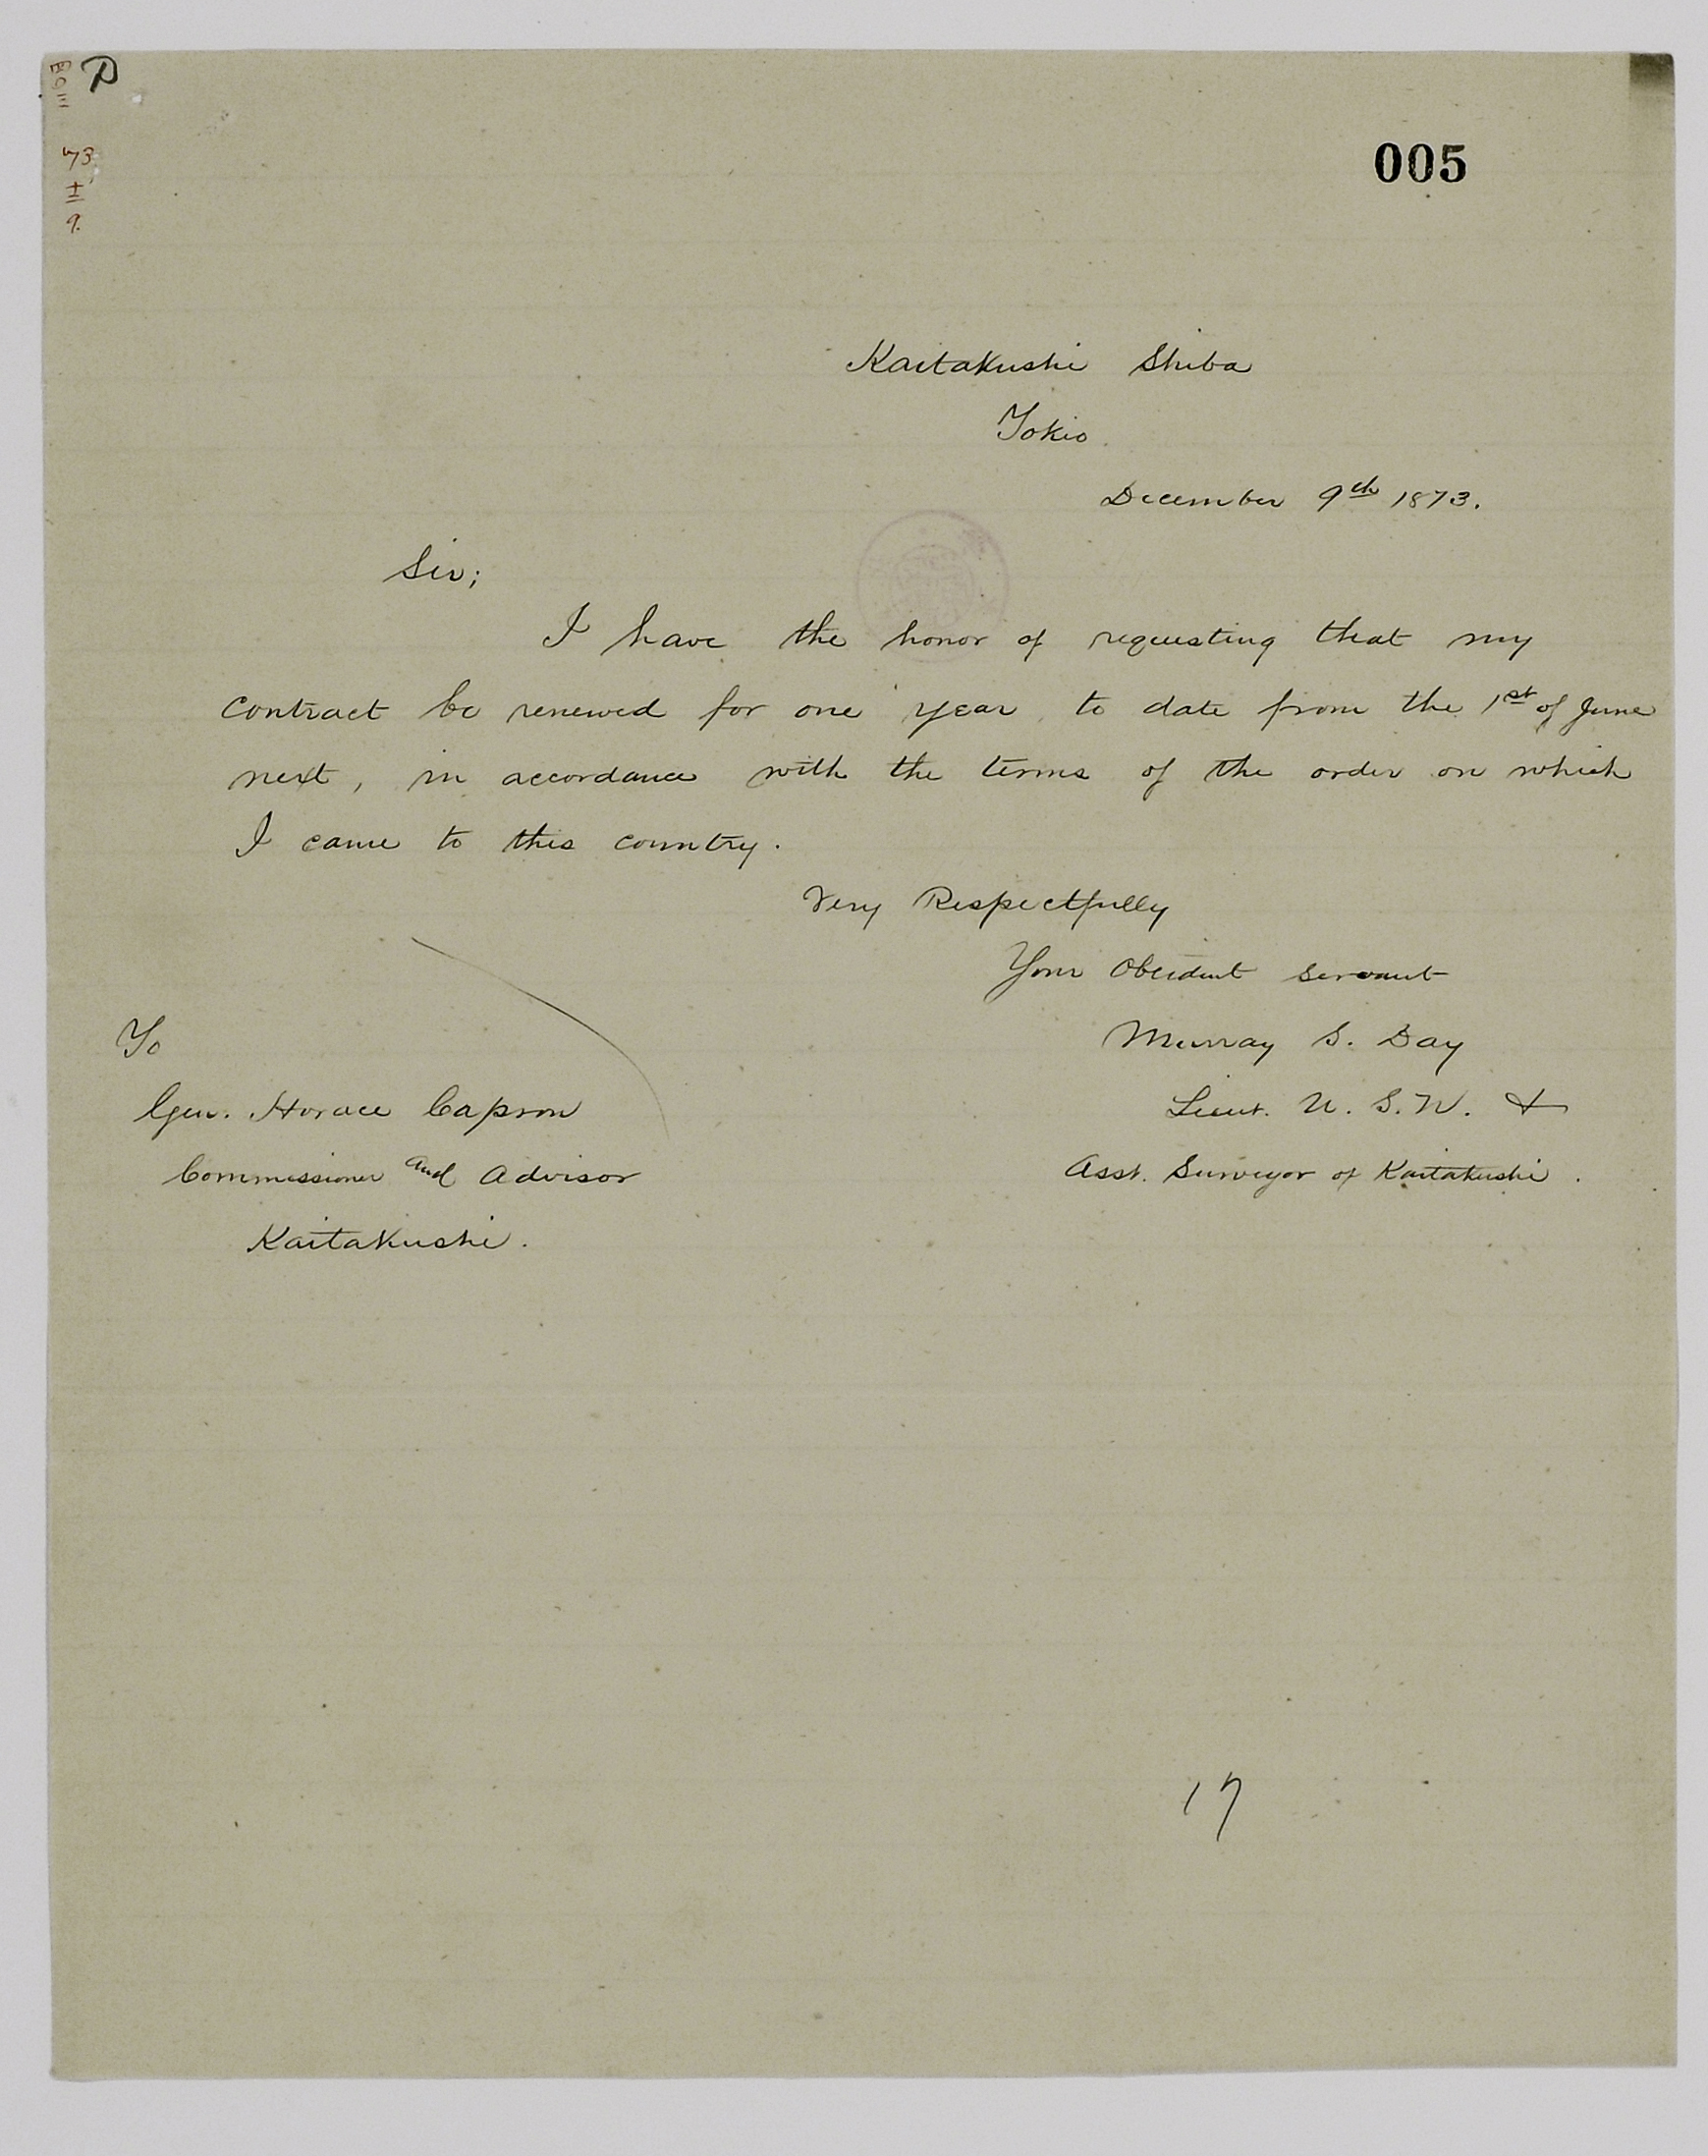 D
'73
±
9.
005
Kaitakushi Shiba
Tokio
December 9th 1873.
Sir;
I have the honor of requesting that my
contract be renewed for one year, to date from the 1st of June
next, in accordance with the terms of the order on which
I came to this country.
Very Respectfully
Your Obeident servant
Murray S. Day
Lieut. U. S. N. &
Asst. Surveyor of Kaitakushi.
To
Gen. Horace Capron
Commissioner and Advisor
Kaitakushi.
17